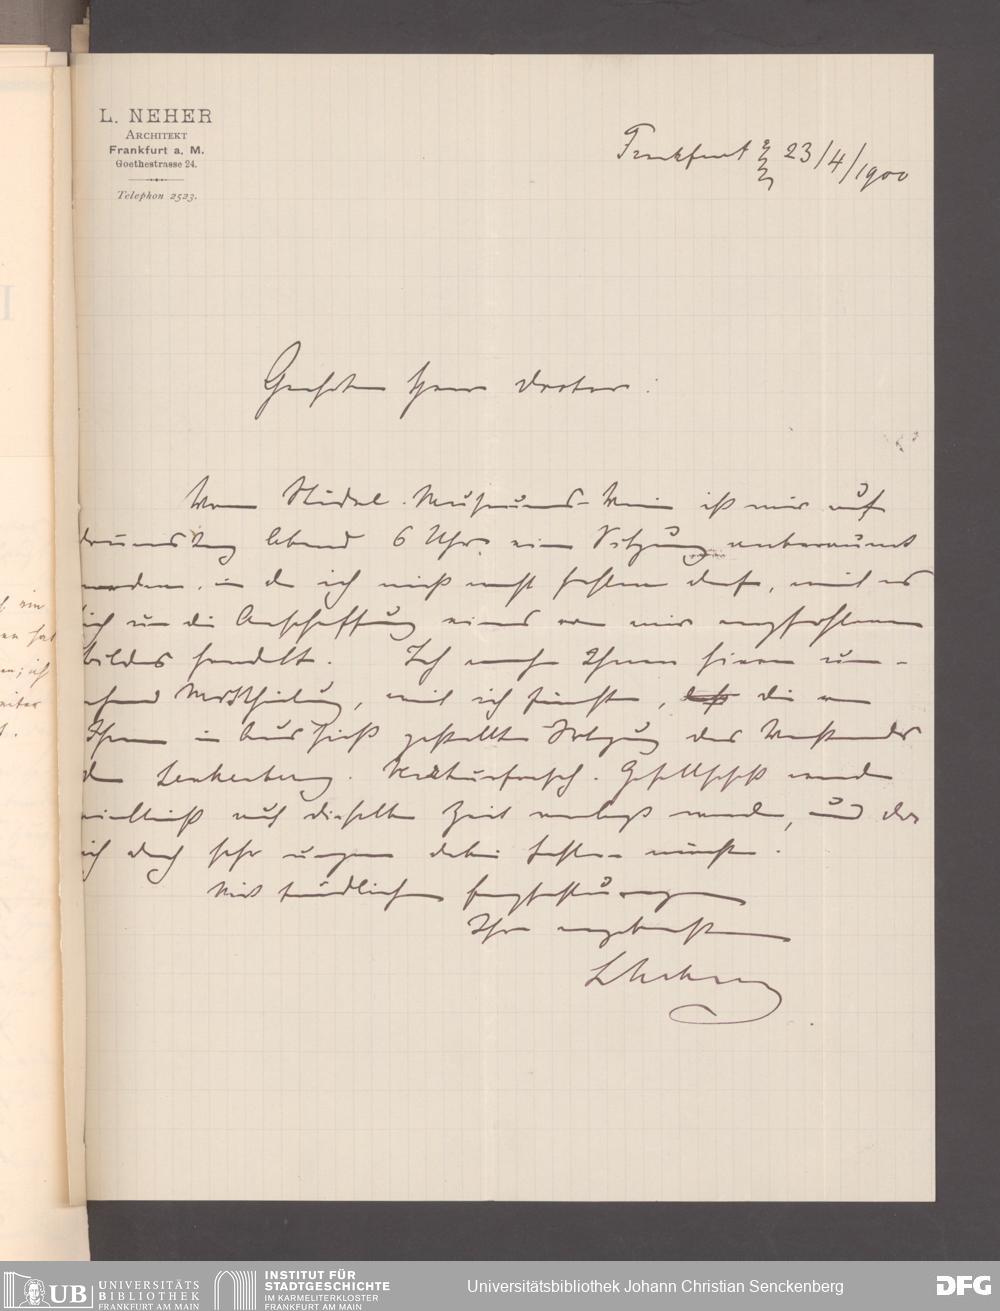 L. NEHER
ARCHITEKT
Frankfurt a. M.
Goethestrasse 24.
Telephon 2523.
Frankfurt 23/4/1900
Geehrter Herr Doctor:
Vom Städel. Museums-Verein ist mir auf
Donnerstag Abend 6 Uhr eine Sitzung anberaumt
worden, in der ich nicht fehlen darf, weil es
sich um die Anschaffung eines von mir empfohlenen
Bildes handelt. Ich mache Ihnen hievon um-
gehend Mittheilung, weil ich fürchte, die von
Ihnen in Aussicht gestellte Sitzung des Vorstandes
der Senckenberg. Naturforsch. Gesellschaft werde
vielleicht auf dieselbe Zeit verlegt werden, und da
ich doch sehr ungern dabei fehlen möchte.
Mit freundlichen Empfehlungen
Ihr ergebenster
LNeher
UB UNIVERSITÄTS
BIBLIOTHEK
FRANKFURT AM MAIN
INSTITUT FÜR
STADTGESCHICHTE
IM KARMELITERKLOSTER
FRANKFURT AM MAIN
Universitätsbibliothek Johann Christian Senckenberg
DFG